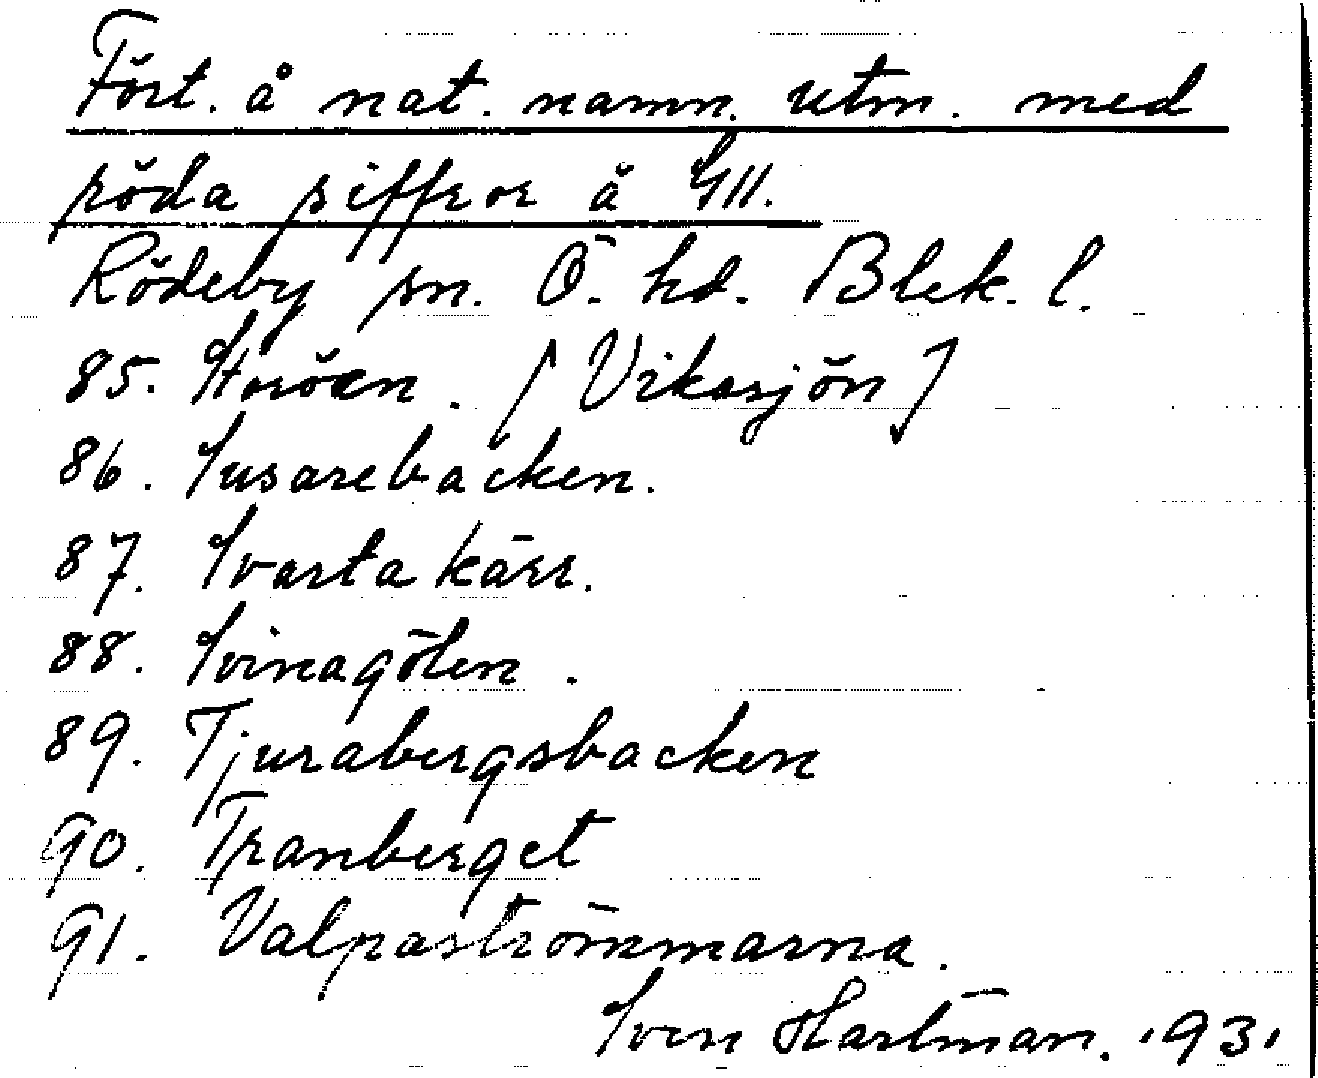 Fört. å nat. namn. utm. med
röda siffror å G11.
Rödeby sn. Ö. hd. Blek. l.
85. Storöen. [Vikasjön]
86. Susarebacken.
87. Svarta kärr.
88. Svinagölen.
89. Tjurabergsbacken
90. Tranberget
91. Valpaströmmarna.
Sven Hartman. 1931